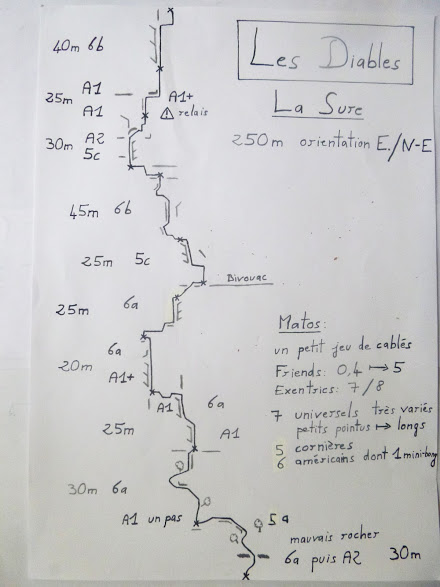 Les Diables
La Sure
250m orientation E./N-E
40m 6b
A1
25m A1+
A1 ⚠ relais
30m A2
5c
45m 6b
25m 5c
Bivouac
25m 6a
6a
20m
A1+
A1 6a
25m A1
30m 6a
A1 un pas 5a
mauvais rocher
6a puis A2 30m
Matos:
un petit jeu de cablés
Friends: 0,4 ↦ 5
Exentrics: 7/8
7 universels très variés
petits pointus ↦ longs
5 cornières
6 américains dont 1 mini-bong